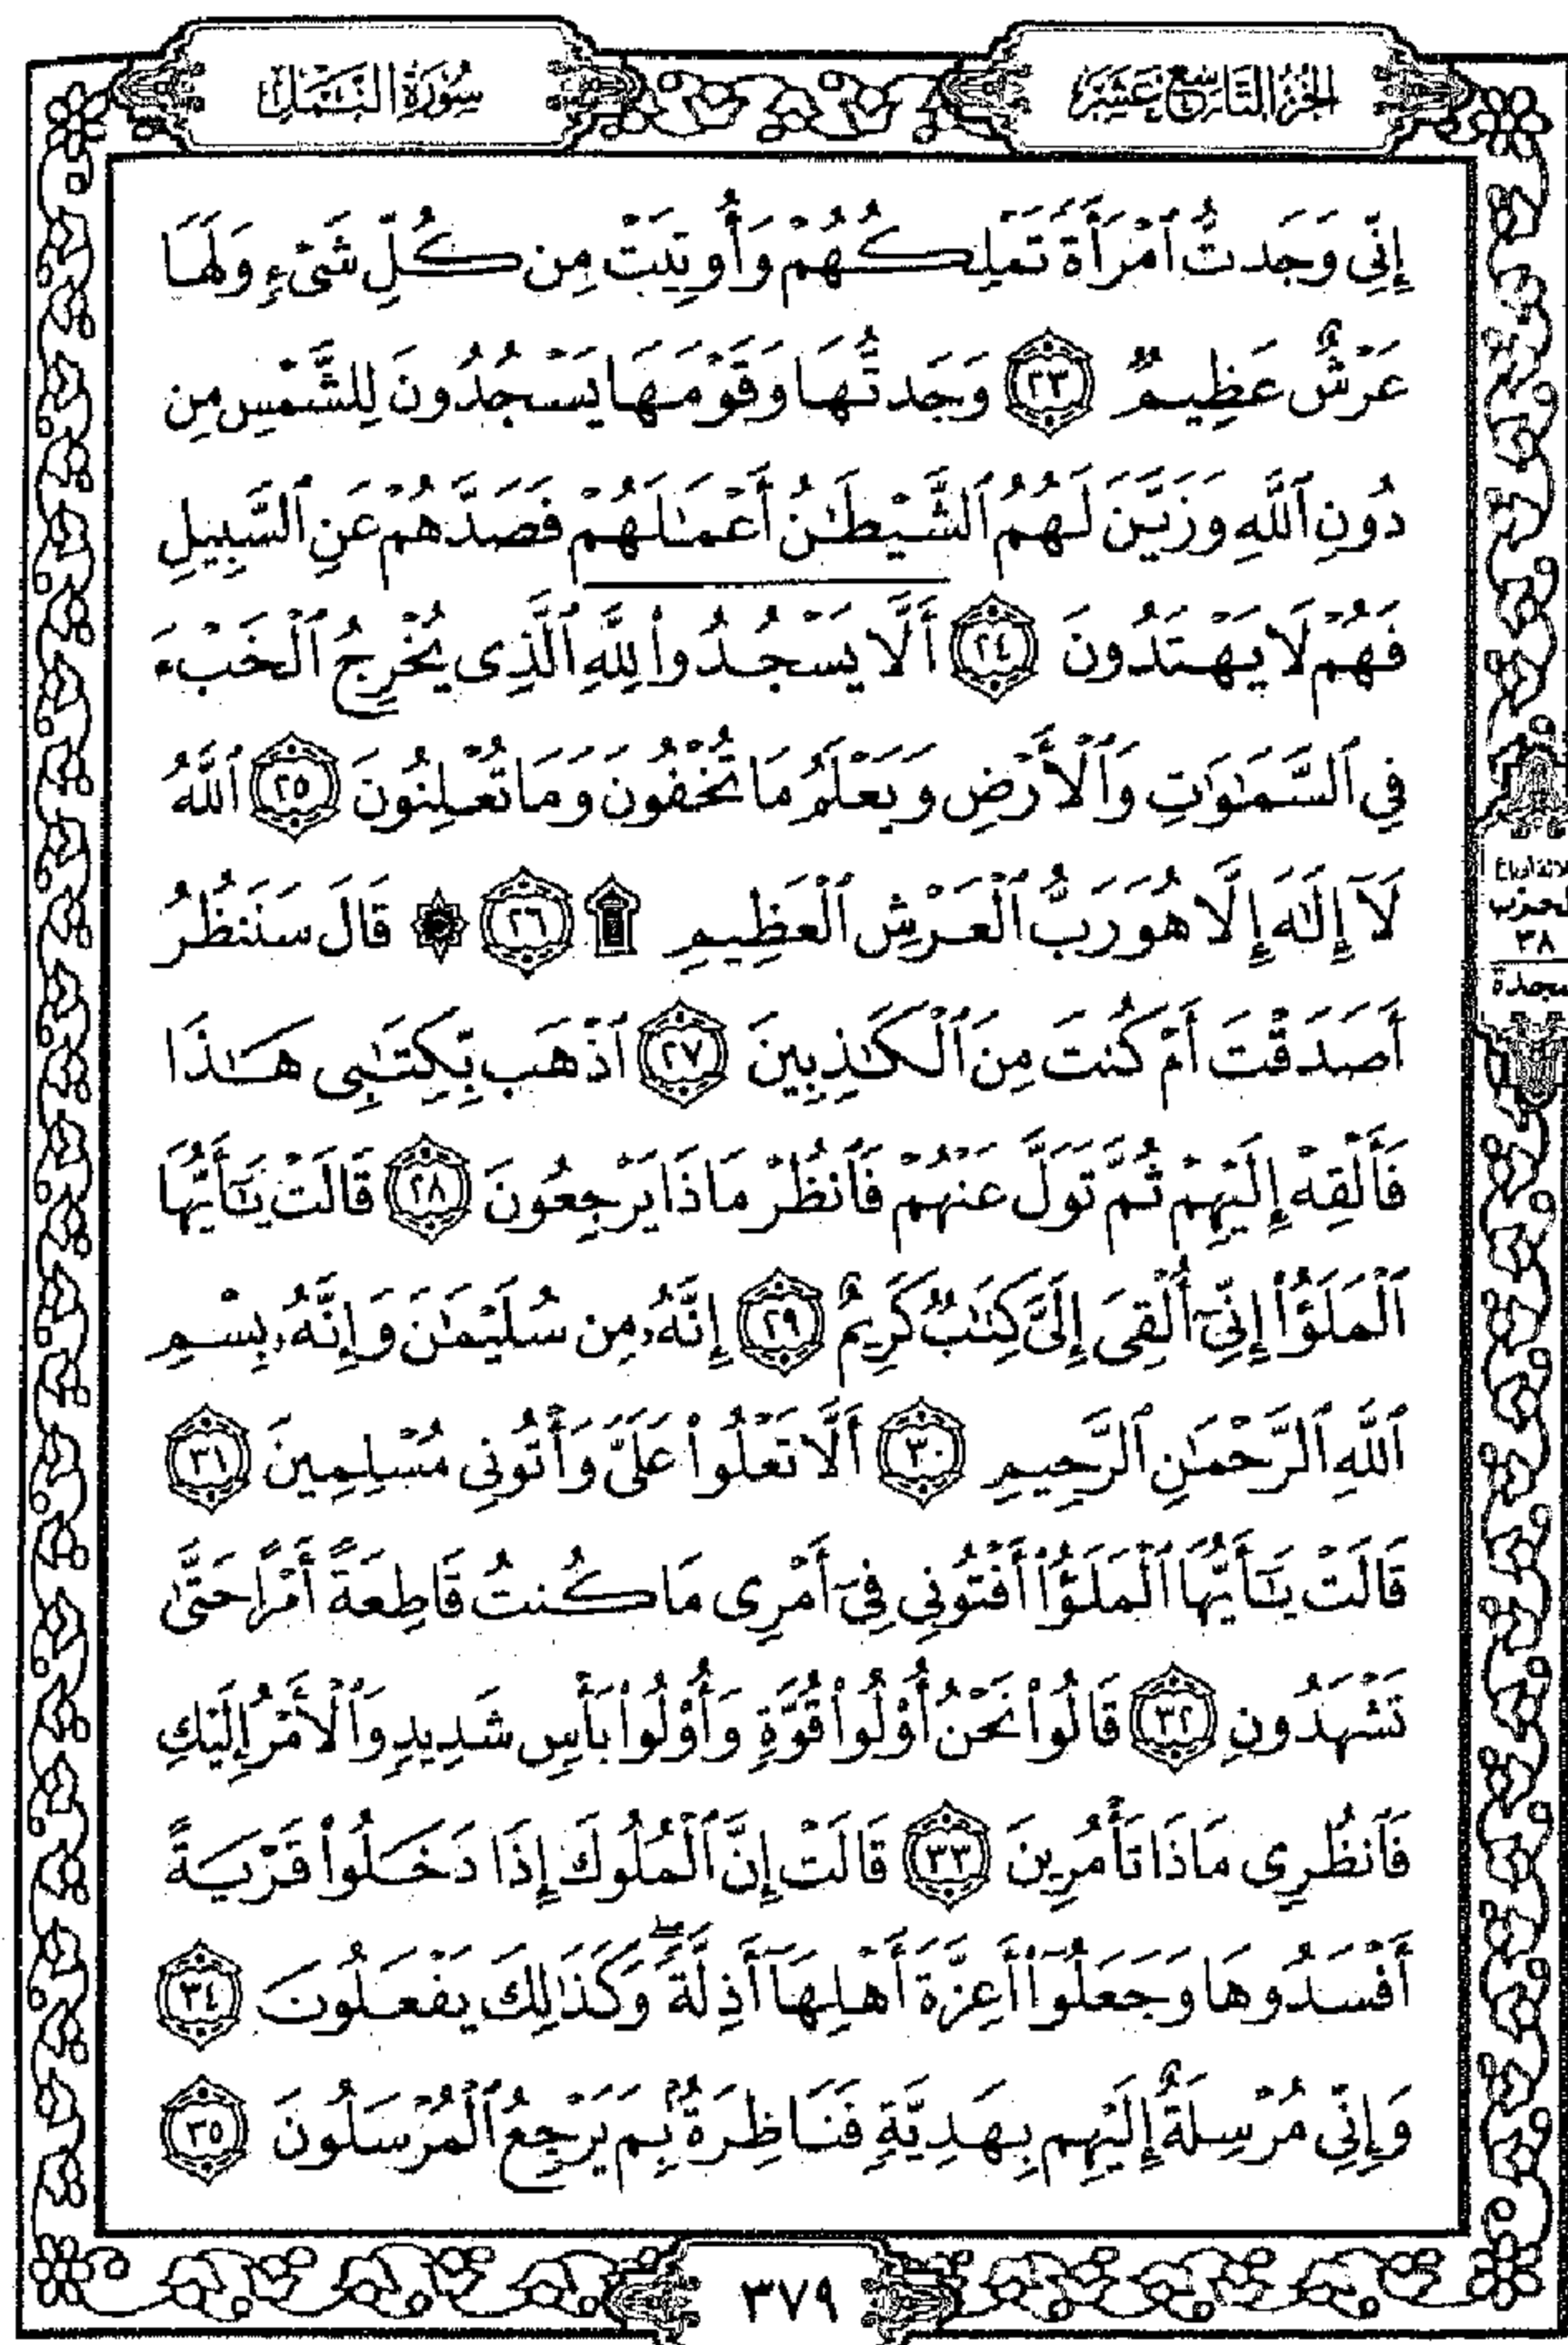 الجزء التاسع عشر
سورة النمل
إِنِّي وَجَدتُّ ٱمْرَأَةً تَمْلِكُهُمْ وَأُوتِيَتْ مِن كُلِّ شَىْءٍ وَلَهَا
عَرْشٌ عَظِيمٌ ﴿٢٣﴾ وَجَدتُّهَا وَقَوْمَهَا يَسْجُدُونَ لِلشَّمْسِ مِن
دُونِ ٱللَّهِ وَزَيَّنَ لَهُمُ ٱلشَّيْطَٰنُ أَعْمَٰلَهُمْ فَصَدَّهُمْ عَنِ ٱلسَّبِيلِ
فَهُمْ لَا يَهْتَدُونَ ﴿٢٤﴾ أَلَّا يَسْجُدُوا۟ لِلَّهِ ٱلَّذِى يُخْرِجُ ٱلْخَبْءَ
فِي ٱلسَّمَٰوَٰتِ وَٱلْأَرْضِ وَيَعْلَمُ مَا تُخْفُونَ وَمَا تُعْلِنُونَ ﴿٢٥﴾ ٱللَّهُ
لَآ إِلَٰهَ إِلَّا هُوَ رَبُّ ٱلْعَرْشِ ٱلْعَظِيمِ ۩ ﴿٢٦﴾ ۞ قَالَ سَنَنظُرُ
أَصَدَقْتَ أَمْ كُنتَ مِنَ ٱلْكَٰذِبِينَ ﴿٢٧﴾ ٱذْهَب بِّكِتَٰبِى هَٰذَا
فَأَلْقِهْ إِلَيْهِمْ ثُمَّ تَوَلَّ عَنْهُمْ فَٱنظُرْ مَاذَا يَرْجِعُونَ ﴿٢٨﴾ قَالَتْ يَٰٓأَيُّهَا
ٱلْمَلَؤُا۟ إِنِّىٓ أُلْقِىَ إِلَىَّ كِتَٰبٌ كَرِيمٌ ﴿٢٩﴾ إِنَّهُۥ مِن سُلَيْمَٰنَ وَإِنَّهُۥ بِسْمِ
ٱللَّهِ ٱلرَّحْمَٰنِ ٱلرَّحِيمِ ﴿٣٠﴾ أَلَّا تَعْلُوا۟ عَلَىَّ وَأْتُونِى مُسْلِمِينَ ﴿٣١﴾
قَالَتْ يَٰٓأَيُّهَا ٱلْمَلَؤُا۟ أَفْتُونِى فِىٓ أَمْرِى مَا كُنتُ قَاطِعَةً أَمْرًا حَتَّىٰ
تَشْهَدُونِ ﴿٣٢﴾ قَالُوا۟ نَحْنُ أُو۟لُوا۟ قُوَّةٍ وَأُو۟لُوا۟ بَأْسٍ شَدِيدٍ وَٱلْأَمْرُ إِلَيْكِ
فَٱنظُرِى مَاذَا تَأْمُرِينَ ﴿٣٣﴾ قَالَتْ إِنَّ ٱلْمُلُوكَ إِذَا دَخَلُوا۟ قَرْيَةً
أَفْسَدُوهَا وَجَعَلُوٓا۟ أَعِزَّةَ أَهْلِهَآ أَذِلَّةً ۖ وَكَذَٰلِكَ يَفْعَلُونَ ﴿٣٤﴾
وَإِنِّى مُرْسِلَةٌ إِلَيْهِم بِهَدِيَّةٍ فَنَاظِرَةٌۢ بِمَ يَرْجِعُ ٱلْمُرْسَلُونَ ﴿٣٥﴾
الحزب
٣٨
سجدة
٣٧٩